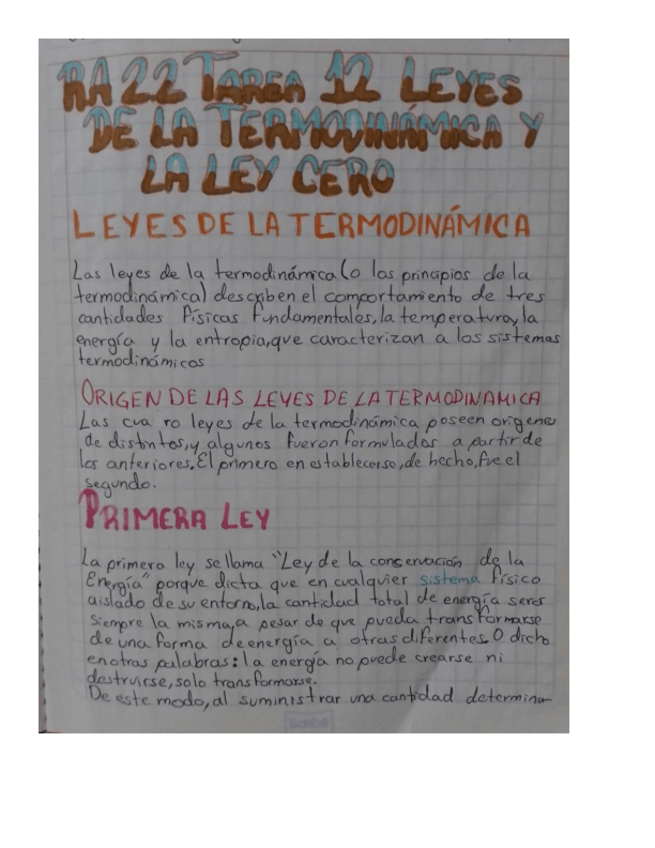 RA 22 TAREA 12 LEYES
DE LA TERMODINÁMICA Y
LA LEY CERO
LEYES DE LA TERMODINÁMICA
Las leyes de la termodinámica (o los principios de la
termodinámica) describen el comportamiento de tres
cantidades físicas fundamentales, la temperatura, la
energía y la entropia, que caracterizan a los sistemas
termodinámicos
ORIGEN DE LAS LEYES DE LA TERMODINAMICA
Las cua ro leyes de la termodinámica poseen origenes
de distintos, y algunos fueron formulados a partir de
los anteriores. El primero en establecerse, de hecho, fue el
segundo.
PRIMERA LEY
La primera ley se llama "Ley de la conservación de la
Energía" porque dicta que en cualquier sistema físico
aislado de su entorno, la cantidad total de energía sera
siempre la misma, a pesar de que pueda transformarse
de una forma de energía a otras diferentes. O dicho
en otras palabras: la energía no puede crearse ni
destruirse, solo transformarse.
De este modo, al suministrar una cantidad determina-
Scribe